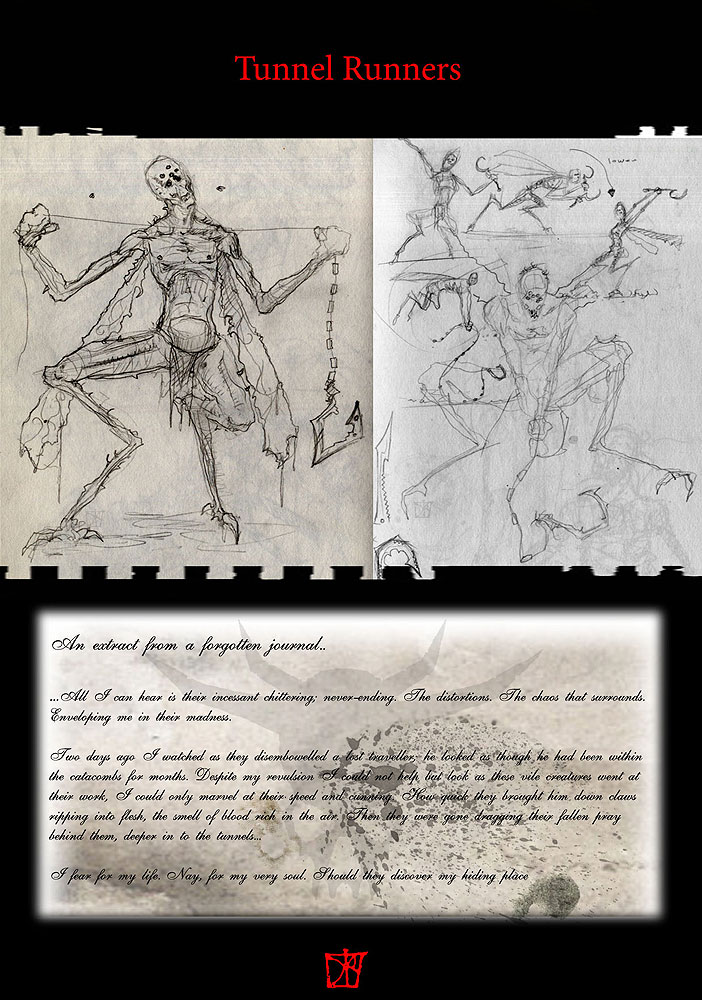 Tunnel Runners
lower
An extract from a forgotten journal..
...All I can hear is their incessant chittering; never-ending. The distortions. The chaos that surrounds.
Enveloping me in their madness.
Two days ago I watched as they disembowelled a lost traveller; he looked as though he had been within
the catacombs for months. Despite my revulsion I could not help but look as these vile creatures went at
their work, I could only marvel at their speed and cunning. How quick they brought him down claws
ripping into flesh, the smell of blood rich in the air. Then they were gone dragging their fallen pray
behind them, deeper in to the tunnels...
I fear for my life. Nay, for my very soul. Should they discover my hiding place